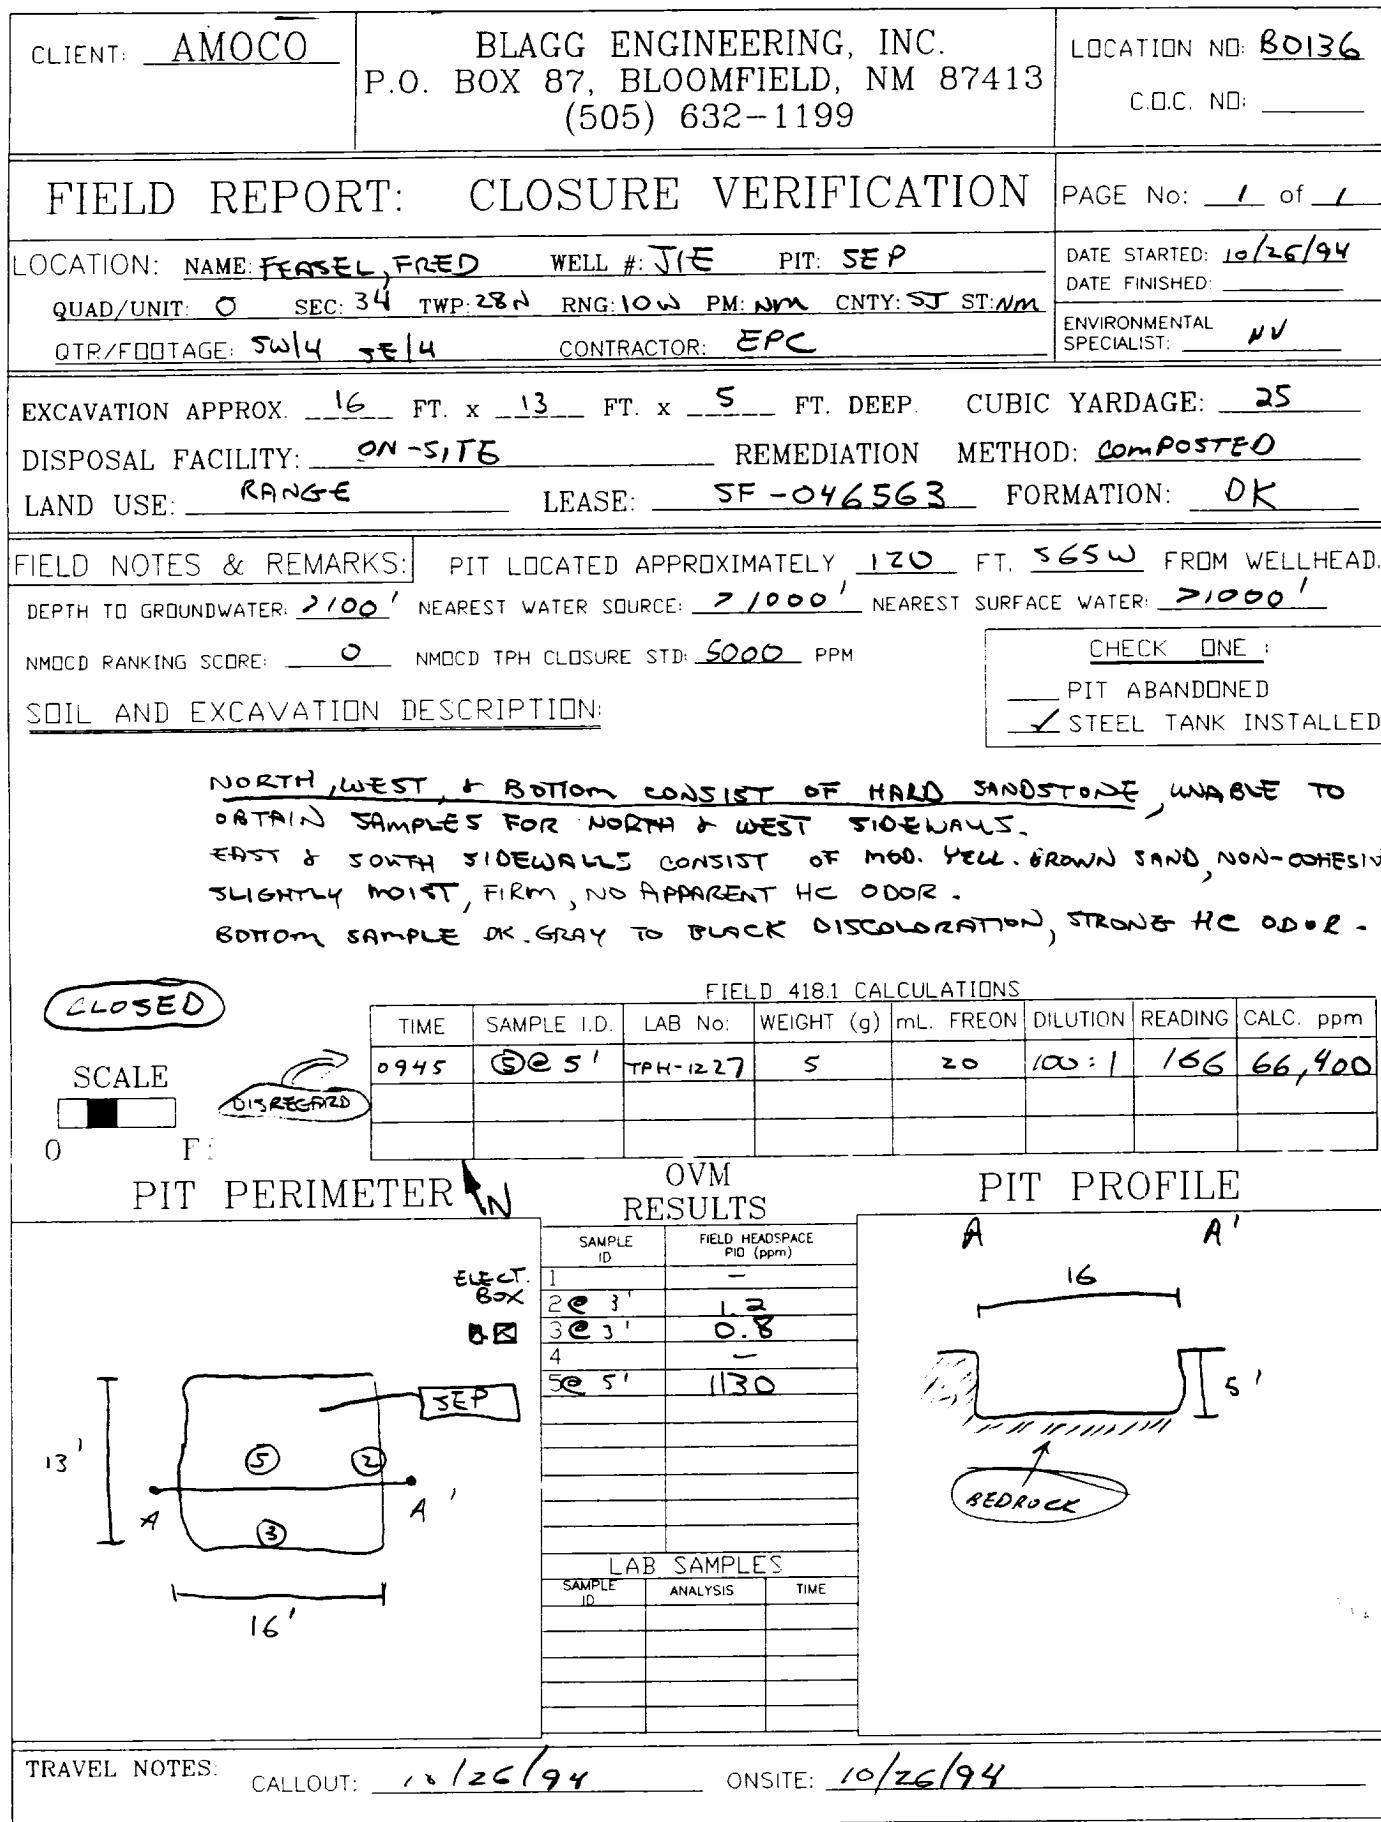 CLIENT: AMOCO
BLAGG ENGINEERING, INC.
P.O. BOX 87, BLOOMFIELD, NM 87413
(505) 632-1199
LOCATION NO: B0136
C.O.C. NO:
FIELD REPORT: CLOSURE VERIFICATION
PAGE No: 1 of 1
LOCATION: NAME: FEASEL, FRED WELL #: J1E PIT: SEP
QUAD/UNIT: O SEC: 34 TWP: 28N RNG: 10W PM: NM CNTY: SJ ST: NM
QTR/FOOTAGE: SW/4 SE/4 CONTRACTOR: EPC
DATE STARTED: 10/26/94
DATE FINISHED:
ENVIRONMENTAL
SPECIALIST: NV
EXCAVATION APPROX. 16 FT. x 13 FT. x 5 FT. DEEP. CUBIC YARDAGE: 25
DISPOSAL FACILITY: ON-SITE REMEDIATION METHOD: COMPOSTED
LAND USE: RANGE LEASE: SF-046563 FORMATION: DK
FIELD NOTES & REMARKS: PIT LOCATED APPROXIMATELY 120 FT. S65W FROM WELLHEAD.
DEPTH TO GROUNDWATER: >100' NEAREST WATER SOURCE: >1000' NEAREST SURFACE WATER: >1000'
NMOCD RANKING SCORE: 0 NMOCD TPH CLOSURE STD: 5000 PPM
CHECK ONE :
PIT ABANDONED
✓ STEEL TANK INSTALLED
SOIL AND EXCAVATION DESCRIPTION:
NORTH, WEST, & BOTTOM CONSIST OF HARD SANDSTONE, UNABLE TO
OBTAIN SAMPLES FOR NORTH & WEST SIDEWALLS.
EAST & SOUTH SIDEWALLS CONSIST OF MOD. YELL. BROWN SAND, NON-COHESIV
SLIGHTLY MOIST, FIRM, NO APPARENT HC ODOR.
BOTTOM SAMPLE DK. GRAY TO BLACK DISCOLORATION, STRONG HC ODOR.
CLOSED
FIELD 418.1 CALCULATIONS
TIME SAMPLE I.D. LAB No: WEIGHT (g) mL. FREON DILUTION READING CALC. ppm
0945 ⑤ @ 5' TPH-1227 5 20 100:1 166 66,400
DISREGARD
SCALE
0 F
PIT PERIMETER N
OVM
RESULTS
PIT PROFILE
SAMPLE ID FIELD HEADSPACE PID (ppm)
1 -
2 @ 3' 1.2
3 @ 3' 0.8
4 -
5 @ 5' 1130
ELECT.
BOX
SEP
13'
⑤ ②
A A'
③
16'
A A'
16
5'
BEDROCK
LAB SAMPLES
SAMPLE ID ANALYSIS TIME
TRAVEL NOTES: CALLOUT: 10/26/94 ONSITE: 10/26/94